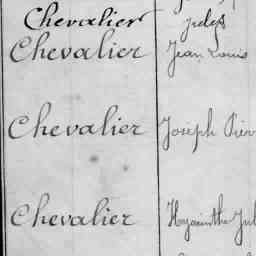 Chevalier Jules
Chevalier Jean Louis
Chevalier Joseph Pier
Chevalier Hyacinthe Jul